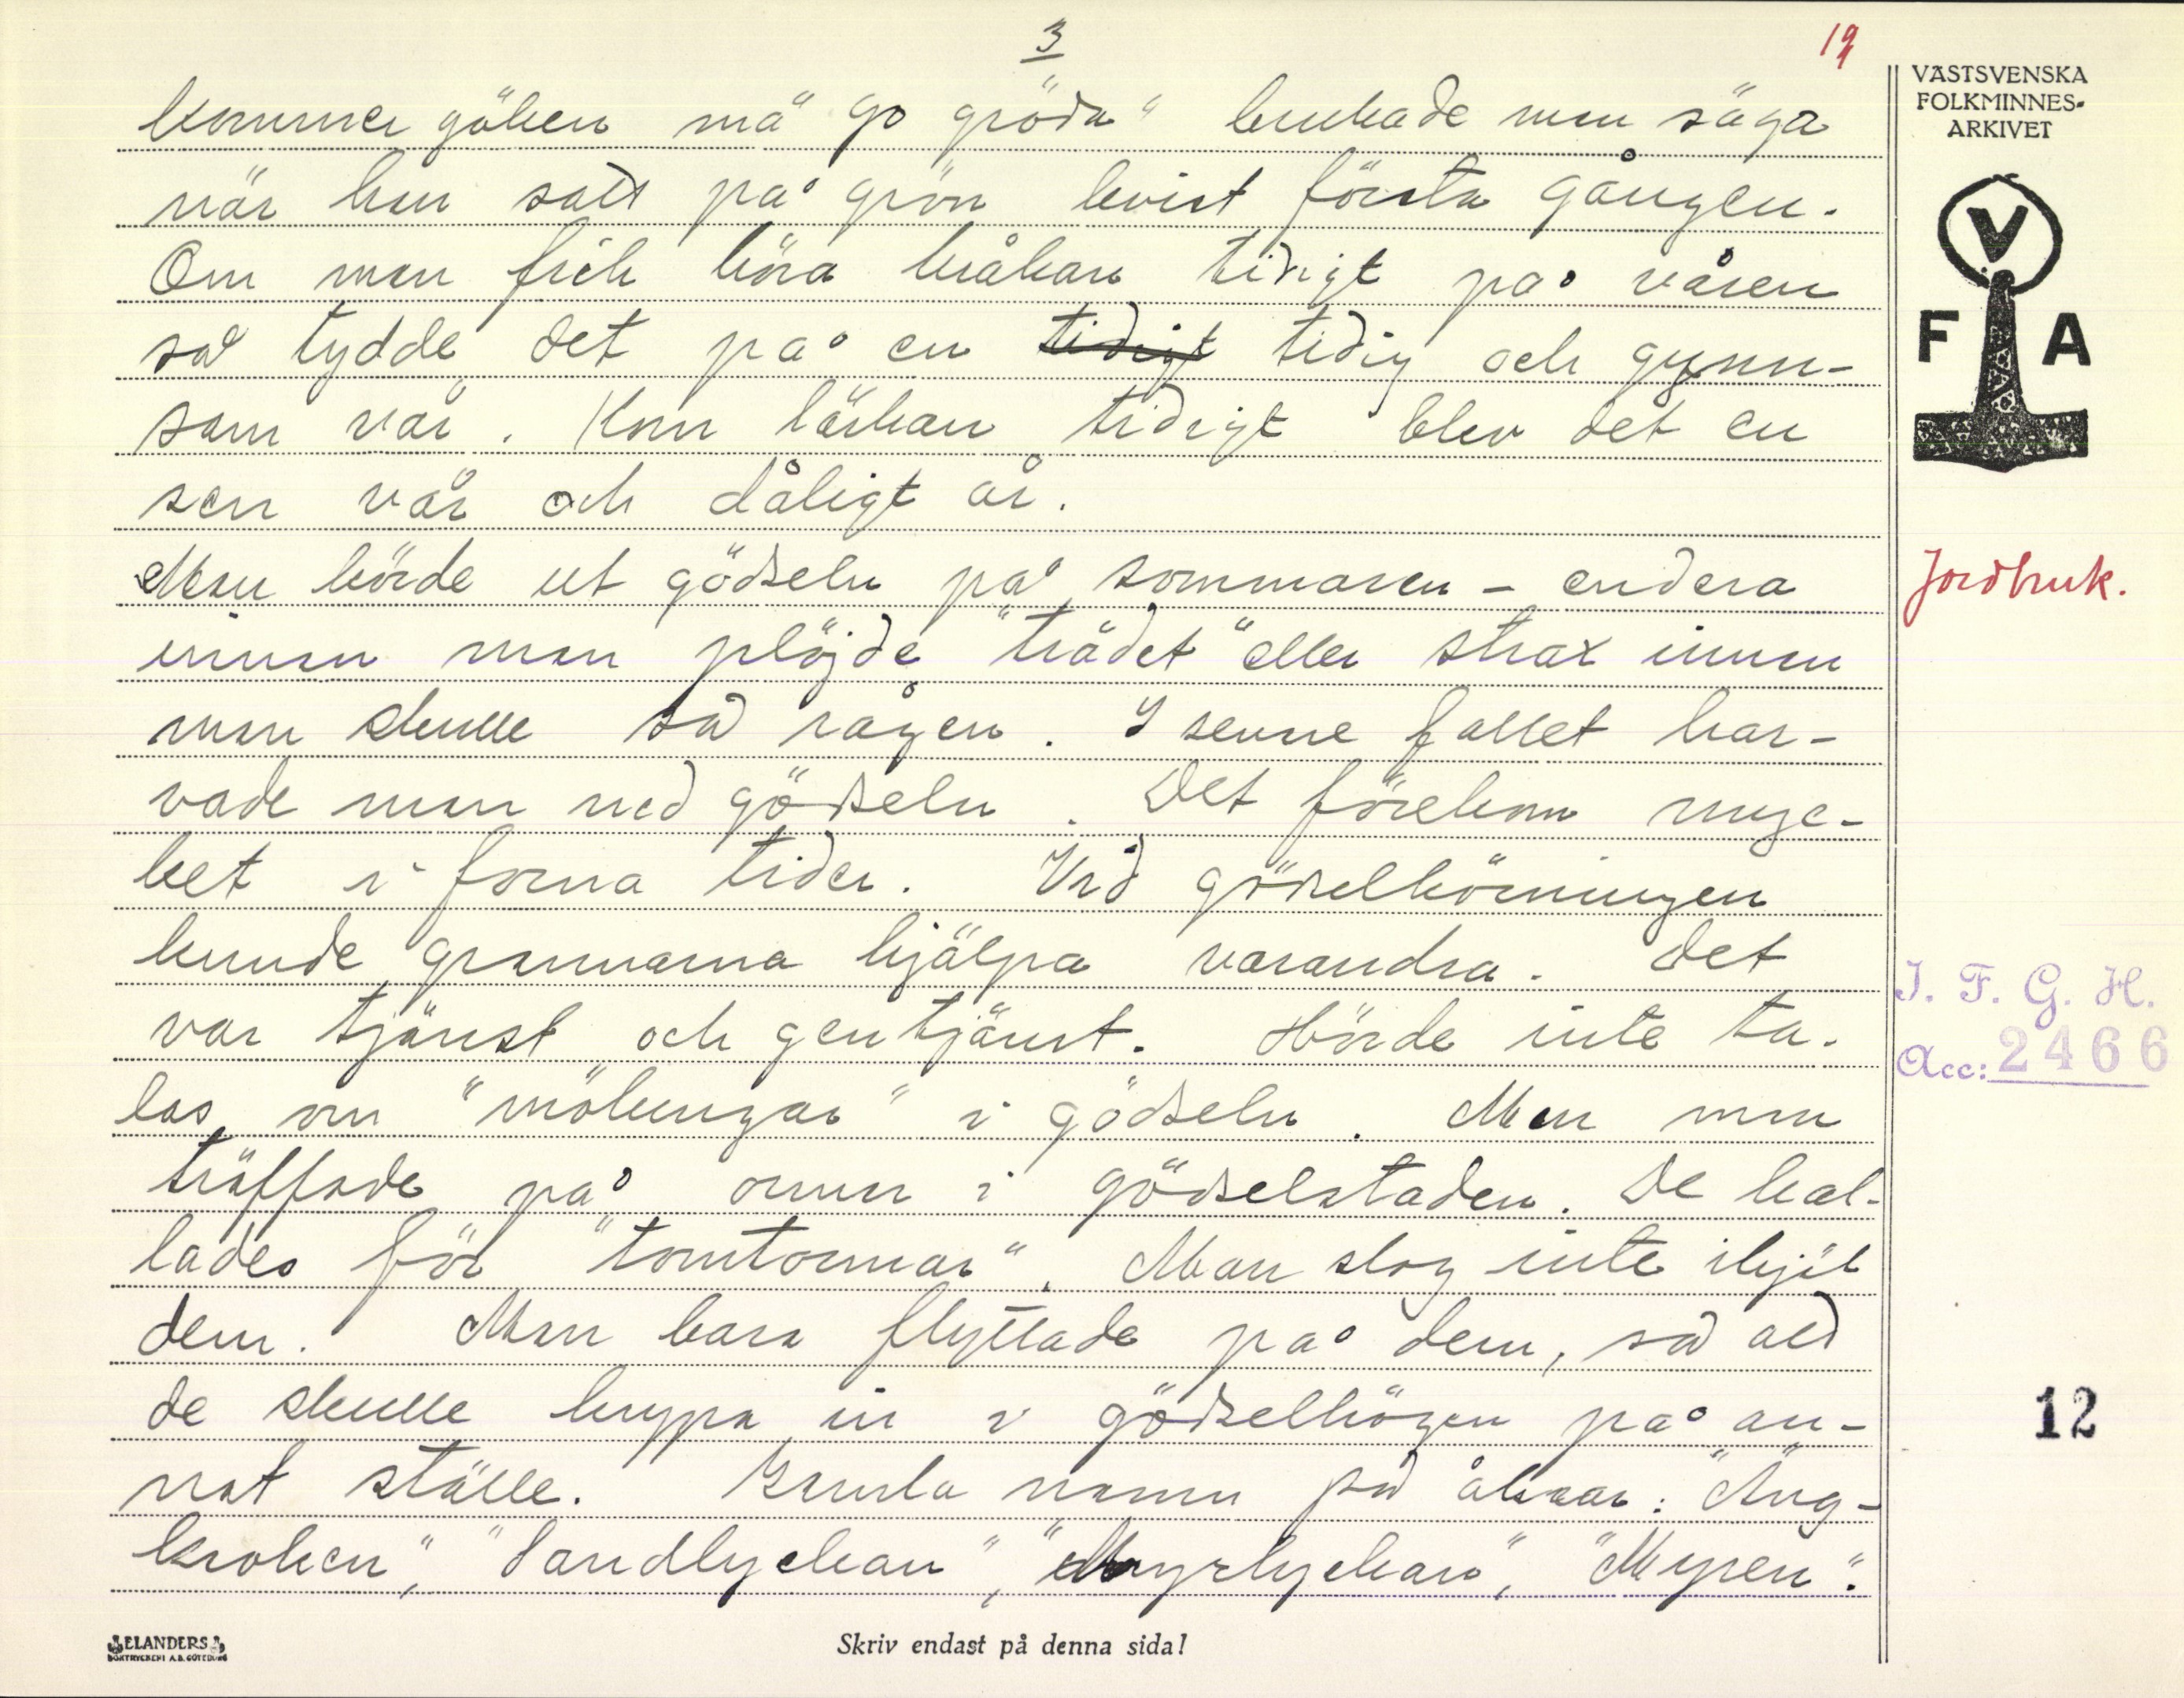 3
19
VÄSTSVENSKA
FOLKMINNES-
ARKIVET
V
F A
kommer göken mä "go gröda" brukade man säga
när han satt på grön kvist första gången.
Om man fick höra kråkan tidigt på våren
så tydde det på en tidigt tidig och gynn-
sam vår. Kom lärkan tidigt blev det en
sen vår och dåligt år.
Man körde ut gödseln på sommaren - endera
innan man plöjde "trädet" eller strax innan
man skulle så rågen. I senne fallet har-
vade man ned gödseln. Det förekom myc-
ket i forna tider. Vid gödselkörningen
kunde grannarna hjälpa varandra. Det
var tjänst och gentjänst. Hörde inte ta-
las om "mökungar" i gödseln. Men man
träffade på orm i gödselstaden. De kal-
lades för "tomtormar". Man slog inte ihjäl
dem. Man bara flyttade på dem, så att
de skulle krypa in i gödselhögen på an-
nat ställe. Gamla namn på åkrar: "Äng-
kroken", "Sandlyckan", "Myrlyckan", "Myren".
Jordbruk.
I. F. G. H.
Acc: 2466
12
ELANDERS
BOKTRYCKERI A.B. GÖTEBORG
Skriv endast på denna sida!